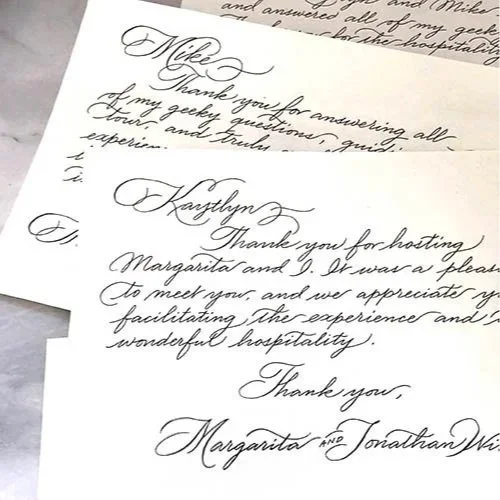 and Mike
and answered all of my geek
for the hospitality
Mike
Thank you for answering all
of my geeky questions, guid
tour, and truly
experien
Kaytlyn
Thank you for hosting
Margarita and I. It was a pleas
to meet you, and we appreciate y
facilitating the experience and
wonderful hospitality.
Thank you,
Margarita AND Jonathan Wi